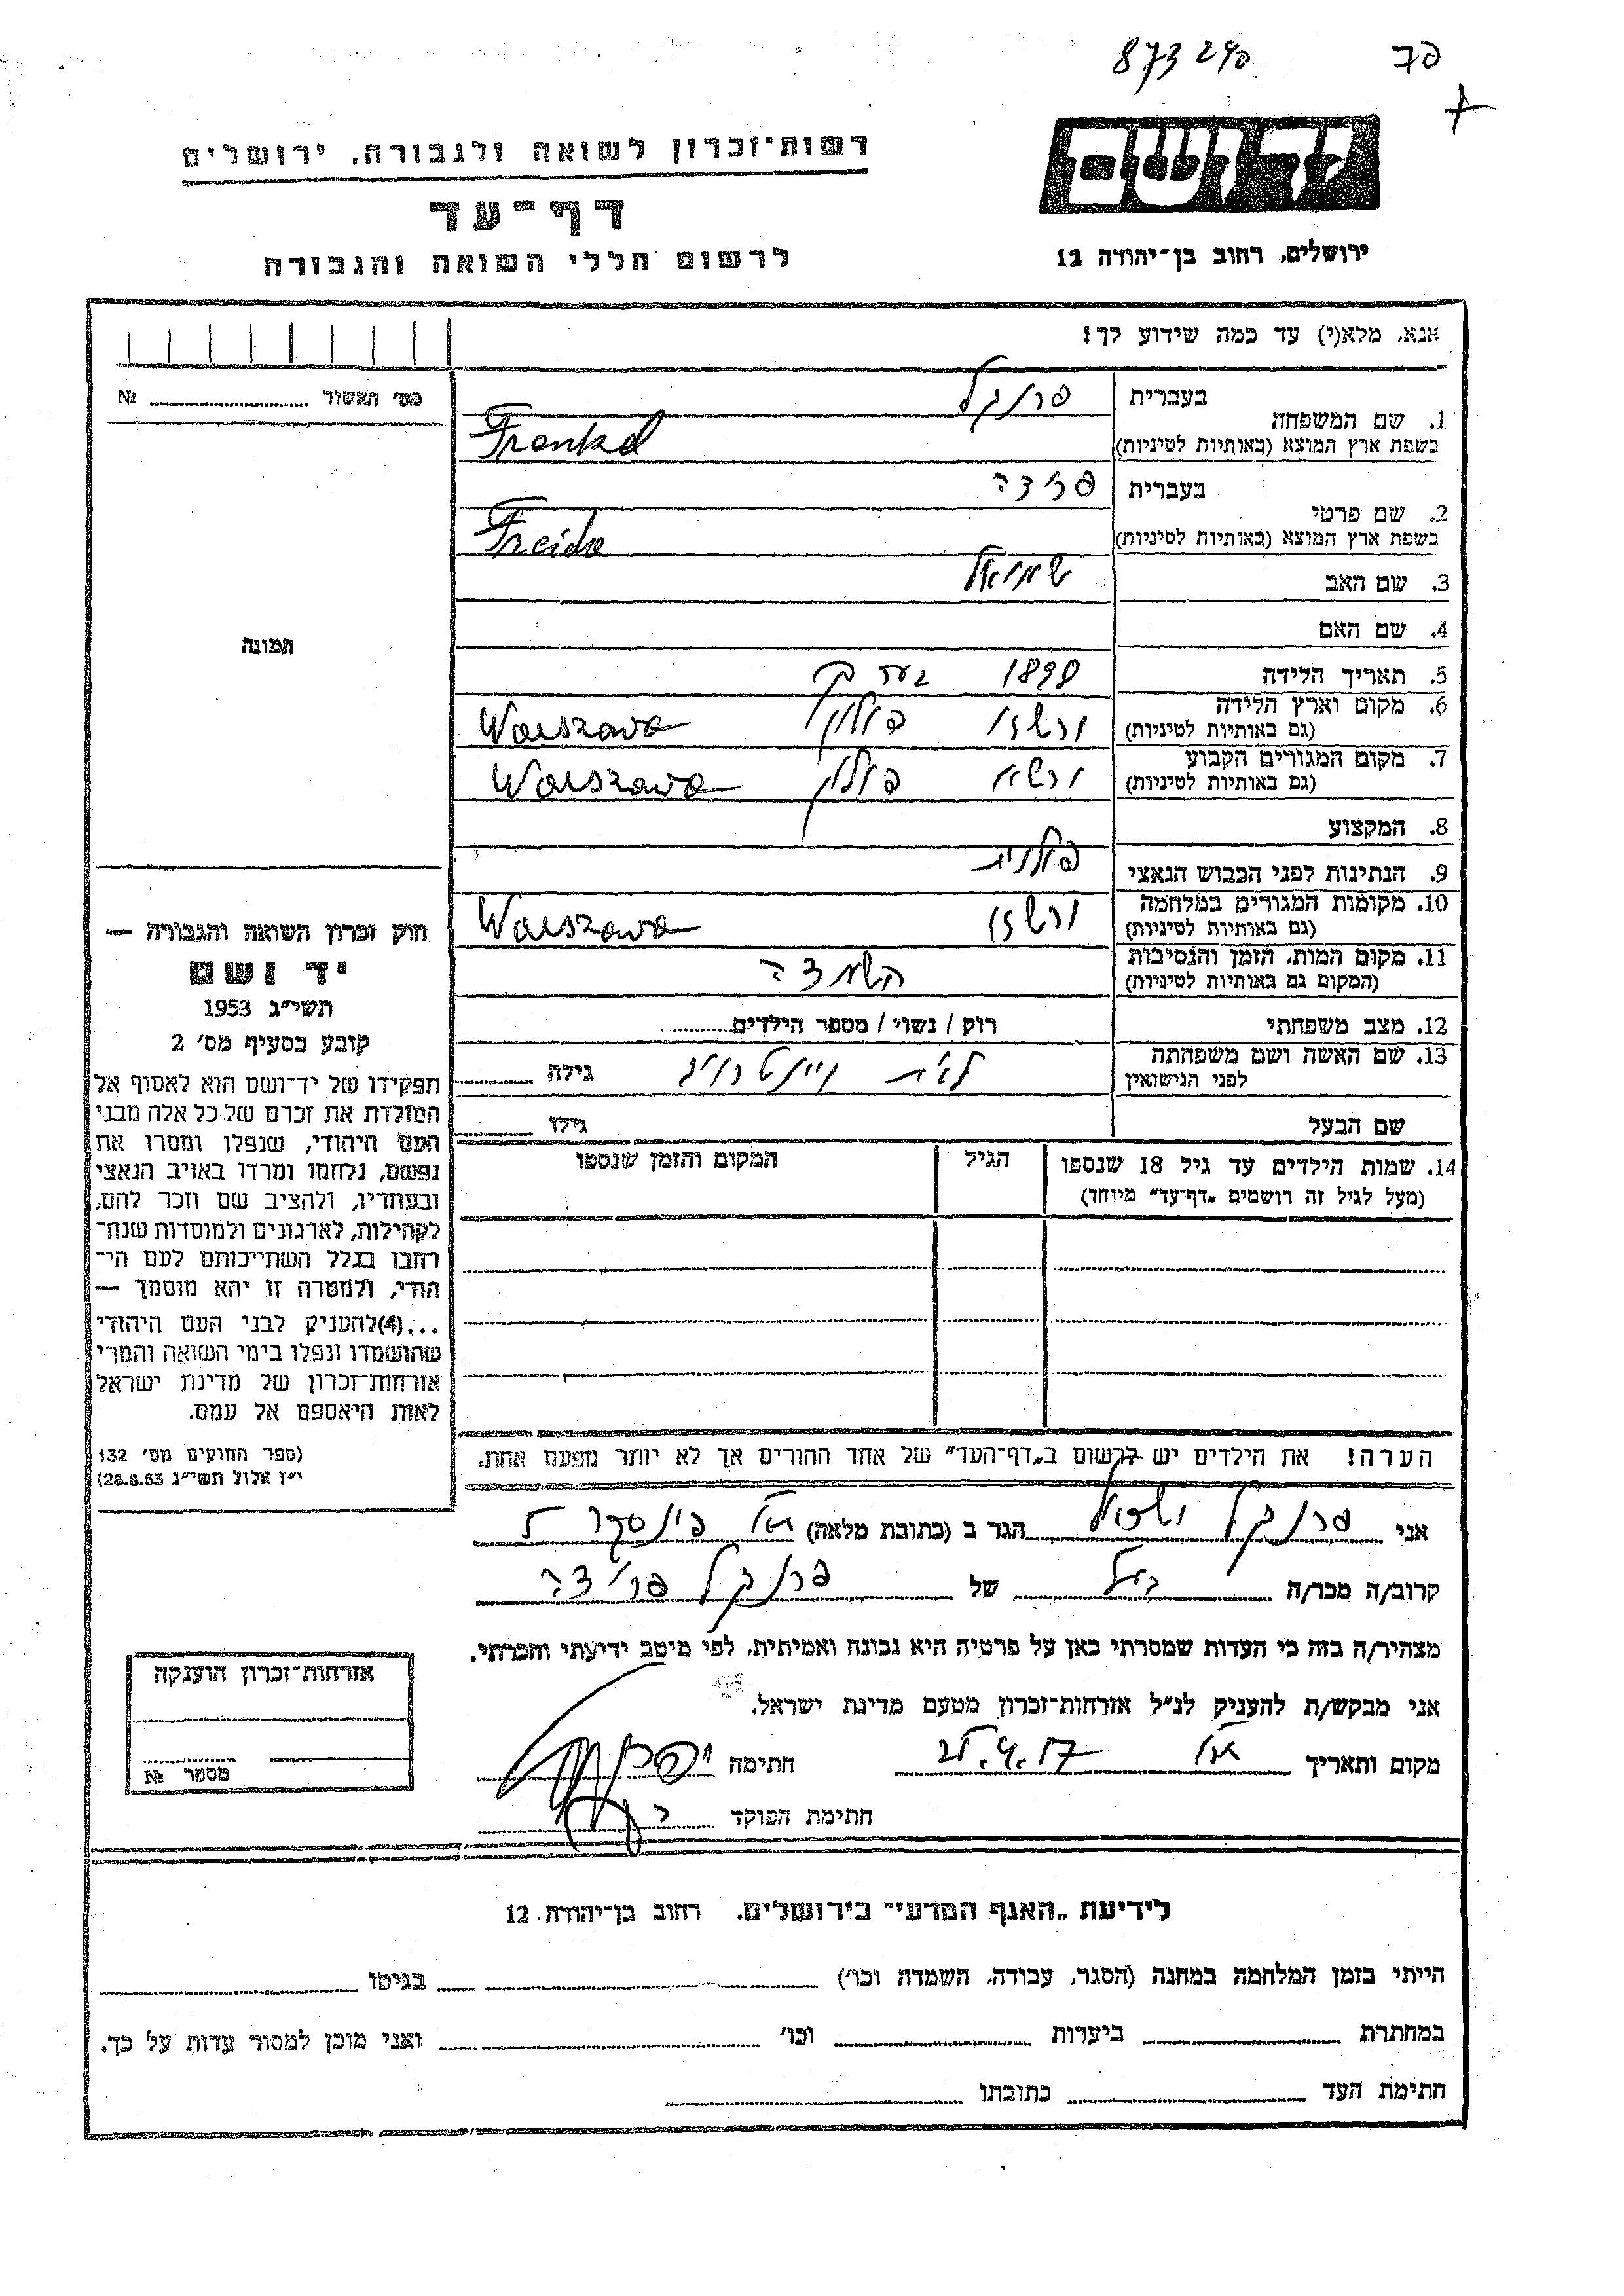 873290 70
יד ושם
רשות־זכרון לשואה ולגבורה, ירושלים
דף־עד
לרשום חללי השואה והגבורה
ירושלים, רחוב בן־יהודה 12
אנא, מלא(י) עד כמה שידוע לך!
מס׳ האשור № 
1. שם המשפחה
בעברית פרנקל
בשפת ארץ המוצא (באותיות לטיניות) Frenkel
2. שם פרטי
בעברית פרידה
בשפת ארץ המוצא (באותיות לטיניות) Freida
3. שם האב שמואל
4. שם האם
5. תאריך הלידה 1898
6. מקום וארץ הלידה
(גם באותיות לטיניות) ורשה פולין Warszawa
7. מקום המגורים הקבוע
(גם באותיות לטיניות) ורשה פולין Warszawa
8. המקצוע
9. הנתינות לפני הכבוש הנאצי פולנית
10. מקומות המגורים במלחמה
(גם באותיות לטיניות) ורשה Warszawa
11. מקום המות, הזמן והנסיבות
(המקום גם באותיות לטיניות) השמדה
12. מצב משפחתי רוק / נשוי / מספר הילדים
13. שם האשה ושם משפחתה
לפני הנישואין לבית גילה
שם הבעל גילו
14. שמות הילדים עד גיל 18 שנספו
(מעל לגיל זה רושמים „דף־עד״ מיוחד)
הגיל
המקום והזמן שנספו
תמונה
חוק זכרון השואה והגבורה —
יד ושם
תשי״ג 1953
קובע בסעיף מס׳ 2
תפקידו של יד־ושם הוא לאסוף אל
המולדת את זכרם של כל אלה מבני
העם היהודי, שנפלו ומסרו את
נפשם, נלחמו ומרדו באויב הנאצי
ובעוזריו, ולהציב שם וזכר להם,
לקהילות, לארגונים ולמוסדות שנח־
רחבו בגלל השתייכותם לעם הי־
הודי, ולמטרה זו יהא מוסמך —
...(4)להעניק לבני העם היהודי
שהושמדו ונפלו בימי השואה והמרי
אזרחות־זכרון של מדינת ישראל
לאות היאספם אל עמם.
(ספר החוקים מס׳ 132
י״ז אלול תשי״ג 28.8.53)
הערה! את הילדים יש לרשום ב„דף־העד״ של אחד ההורים אך לא יותר מפעם אחת.
אני פרנקל הגר ב (כתובת מלאה) ת״א
קרוב/ה מכר/ה של פרנקל פרידה
מצהיר/ה בזה כי העדות שמסרתי כאן על פרטיה היא נכונה ואמיתית, לפי מיטב ידיעתי והכרתי.
אני מבקש/ת להעניק לנ״ל אזרחות־זכרון מטעם מדינת ישראל.
מקום ותאריך ת״א חתימה
חתימת הפוקד
אזרחות־זכרון הוענקה
מספר №
לידיעת „האגף המדעי״ בירושלים, רחוב בן־יהודה 12
הייתי בזמן המלחמה במחנה (הסגר, עבודה, השמדה וכו׳) בגיטו
במחתרת ביערות וכו׳ ואני מוכן למסור עדות על כך.
חתימת העד כתובתו